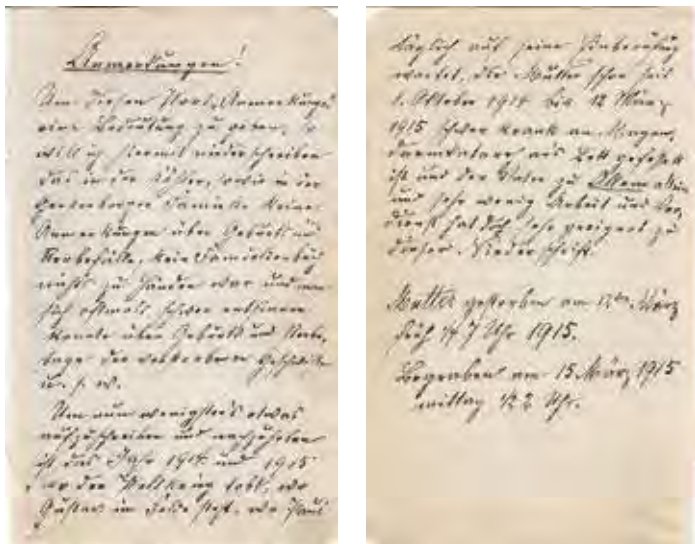 Anmerkungen!
Um diesen Wort „Anmerkungen"
eine Bedeutung zu geben, so
will ich hiermit niederschreiben
das in der Köhler, sowie in der
Familie keine
Anmerkungen über Geburts und
Sterbefälle, kein Familienbuch
nichts zu Händen war und man
sich oftmals schwer entsinnen
konnte über Geburts und Sterbe-
tage der verstorbenen Geschwister
u. s. w.
Um nun wenigstens etwas
aufzuschreiben und nachzuholen
ist das Jahr 1914 und 1915
wo der Weltkrieg tobt, wo
Gustav im Felde steht, wo Paul
täglich auf seine Einberufung
wartet, die Mutter schon seit
1. Oktober 1914 bis 12 März
1915 schwer krank an Magen,
darmkatarr ans Bett gefesselt
ist und der Vater zu allein
und sehr wenig Arbeit und Ver-
dienst hat doch sehr geeignet zu
dieser Niederschrift.
Mutter gestorben am 12ten März
früh 1/4 7 Uhr 1915.
Begraben am 15. März 1915
mittag 1/2 2 Uhr.